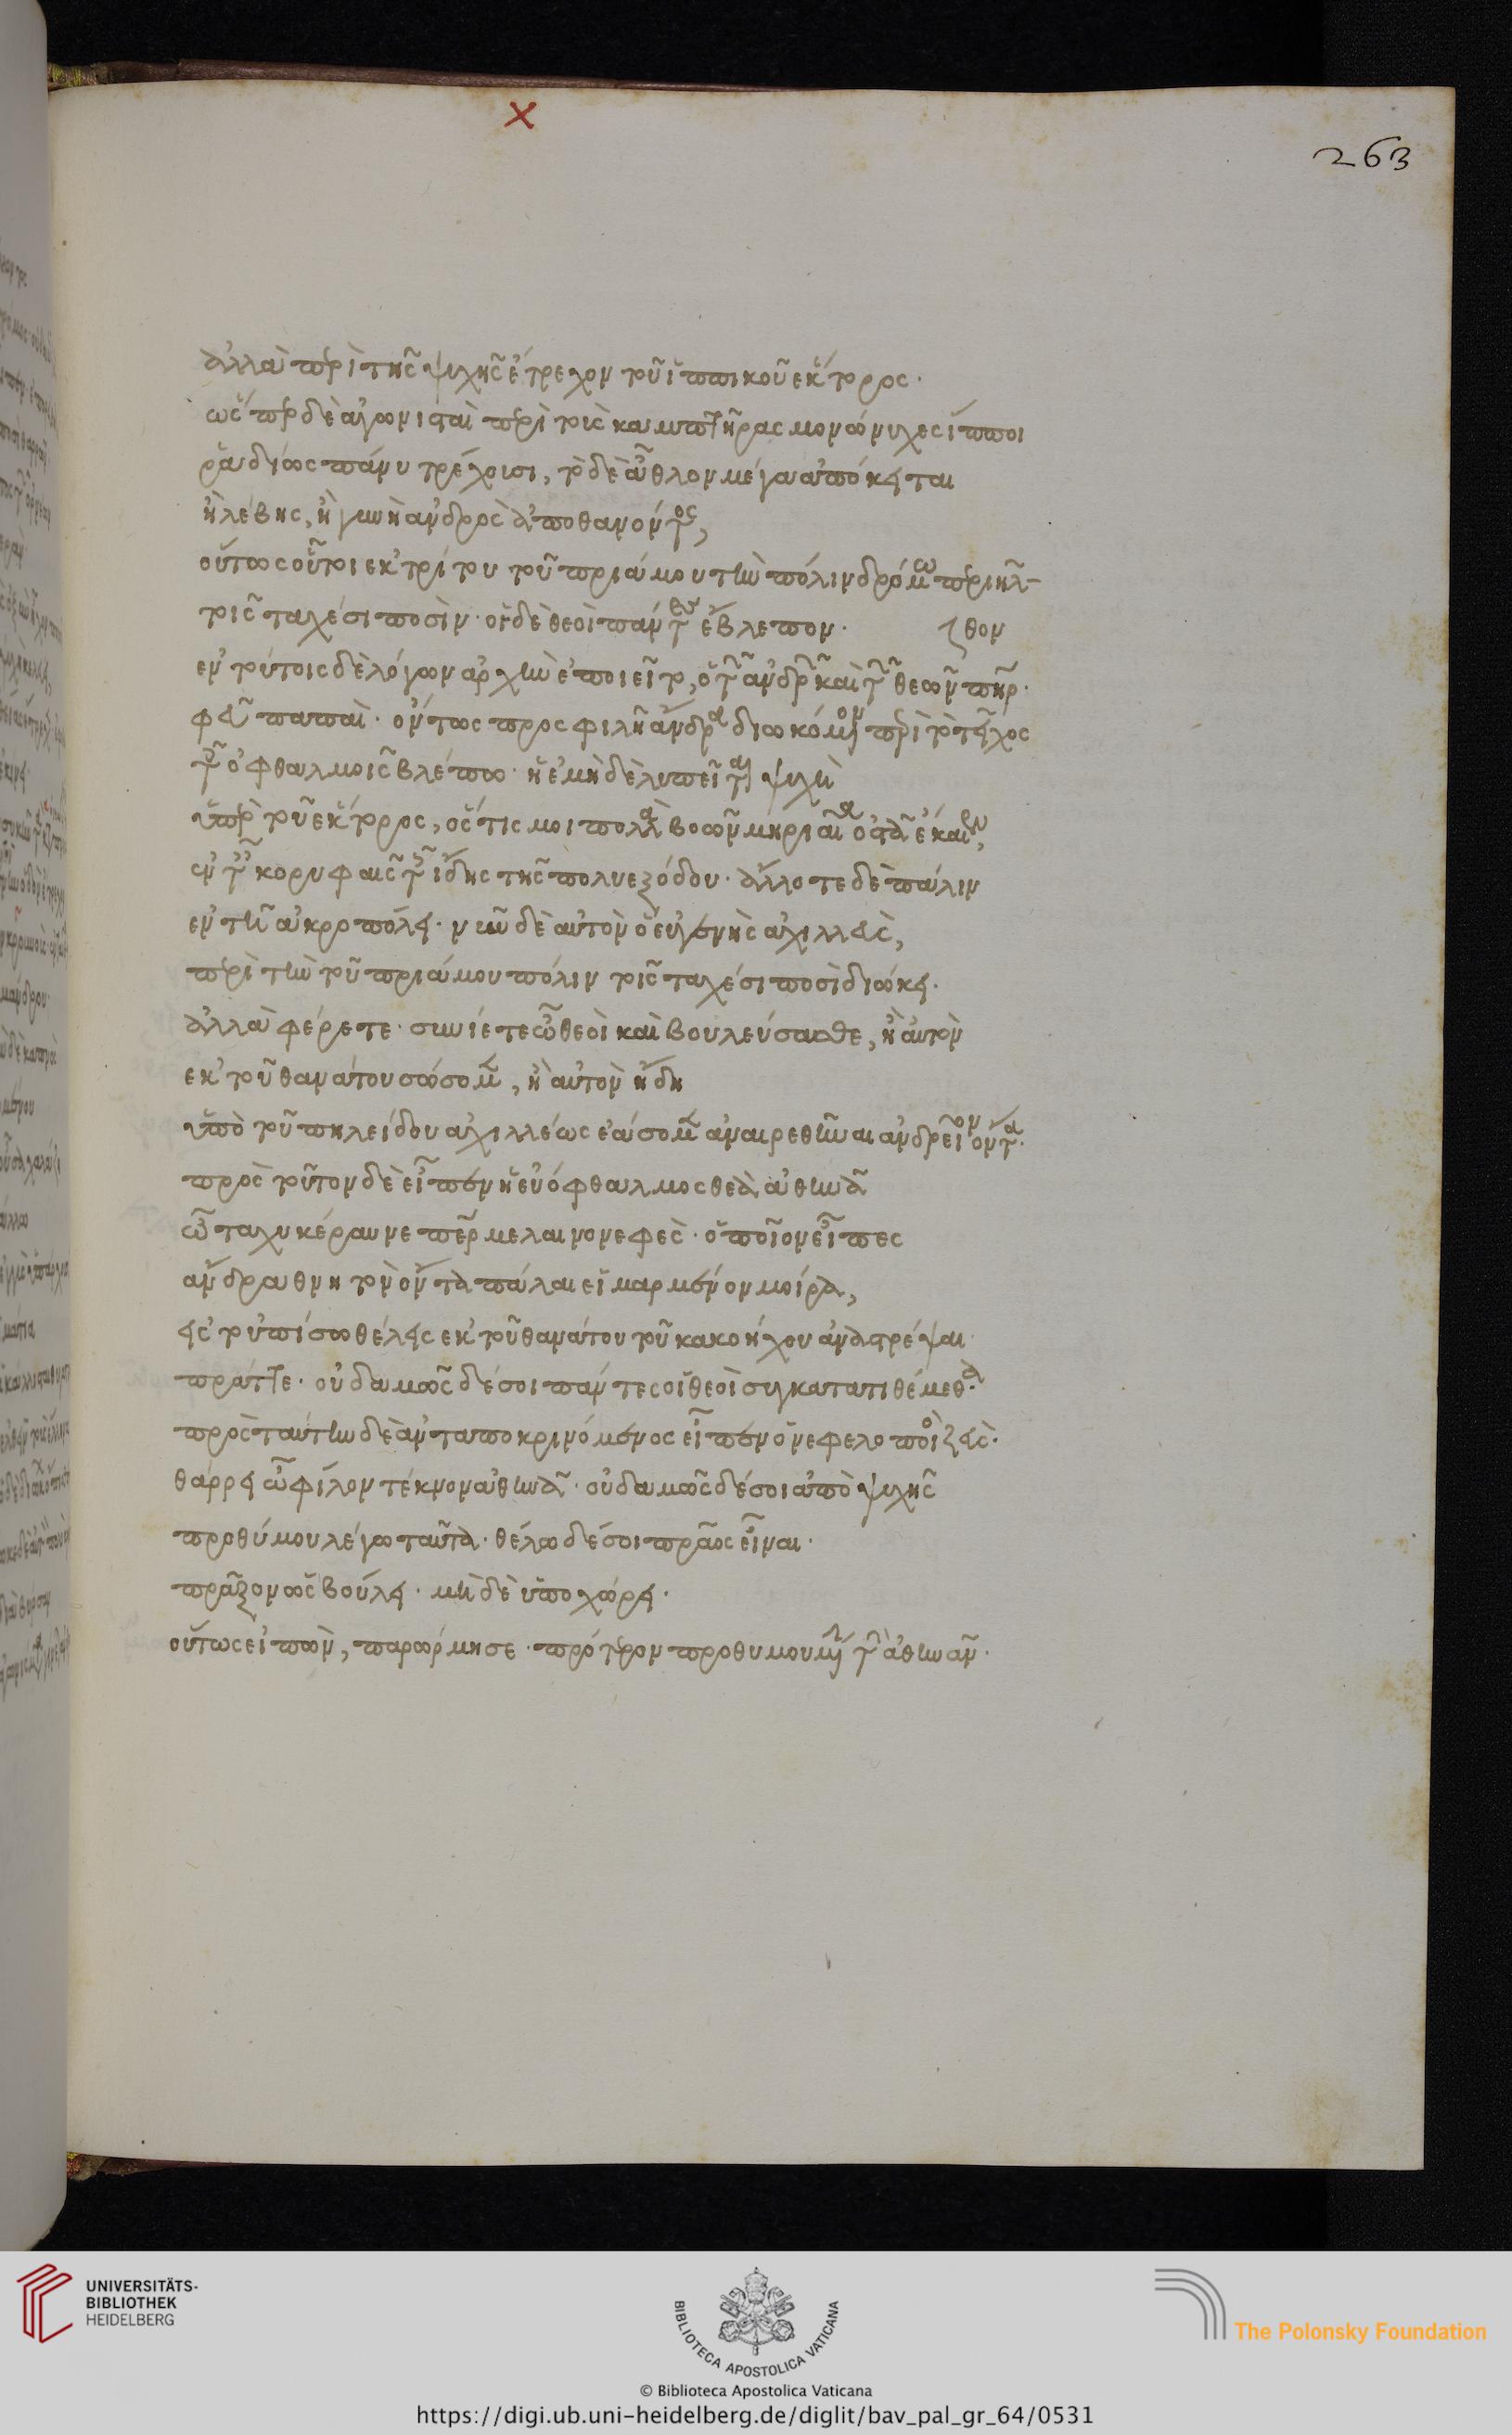 x
263
ἀλλὰ περὶ τῆς ψυχῆς ἔτρεχον τοῦ ἱππικοῦ ἕκτορος·
ὥσπερ δὲ ἀγωνισταὶ περὶ τοὺς καμπτῆρας μονώνυχες ἵπποι
ῥαδίως πάνυ τρέχουσι, τὸ δὲ ἆθλον μέγα ἀπόκειται
ἢ λέβης, ἢ γυνὴ ἀνδρὸς ἀποθανόντος,
οὕτως οὗτοι ἐκ τρίτου τοῦ πριάμου τὴν πόλιν δρόμω περιῆλ-
τοῖς ταχέσι ποσίν· οἱ δὲ θεοὶ πάντες ἔβλεπον· θον
ἐν τούτοις δὲ λόγων ἀρχὴν ἐποιεῖτο, ὁ τῶν ἀνδρῶν καὶ τῶν θεῶν πηρ·
φεῦ παπαί· ὄντως προσφιλῆ ἄνδρα διωκόμενον περὶ τὸ τεῖχος
τοῖς ὀφθαλμοῖς βλέπω· ἡ ἐμὴ δὲ λυπεῖται ψυχὴ
ὑπὲρ τοῦ ἕκτορος, ὅστις μοι πολλὰ βοῶν μηριαῖα ὀστᾶ ἔκαιεν,
ἐν ταῖς κορυφαῖς τῆς ἴδης τῆς πολυεξόδου· ἄλλοτε δὲ πάλιν
ἐν τῇ ἀκροπόλει· νῦν δὲ αὐτὸν ὁ εὐγενὴς ἀχιλλεὺς,
περὶ τὴν τοῦ πριάμου πόλιν τοῖς ταχέσι ποσὶ διώκει·
ἀλλὰ φέρετε· συνίετε ὦ θεοὶ καὶ βουλεύσασθε, ἢ αὐτὸν
ἐκ τοῦ θανάτου σώσομεν, ἢ αὐτὸν ἤδη
ὑπὸ τοῦ πηλείδου ἀχιλλέως ἐάσομεν ἀναιρεθῆναι ἀνδρεῖον ὄντα·
πρὸς τοῦτον δὲ εἶπεν ἡ εὐόφθαλμος θεὰ ἀθηνᾶ
ὦ ταχυκέραυνε περ μελαινονεφὲς· ὁποῖον εἶπες
ἄνδρα θνητὸν ὄντα πάλαι εἱμαρμένον μοίρα,
εἰς τοὐπίσω θέλεις ἐκ τοῦ θανάτου τοῦ κακοήχου ἀναστρέψαι·
πράττε· οὐδαμῶς δέ σοι πάντες οἱ θεοὶ συγκατατιθέμεθα·
πρὸς ταύτην δὲ ἀνταποκρινόμενος εἶπεν ὁ νεφελοποιὸς ζεὺς·
θάρρει ὦ φίλον τέκνον ἀθηνᾶ· οὐδαμῶς δέ σοι ἀπὸ ψυχῆς
προθύμου λέγω ταῦτα· θέλω δέ σοι πρᾶος εἶναι·
πρᾶξον ὡς βούλει· μὴ δὲ ὑποχώρει·
οὕτως εἰπὼν, παρώρμησε· πρότερον προθυμουμένην τὴν ἀθηνᾶν·
UNIVERSITÄTS-
BIBLIOTHEK
HEIDELBERG
BIBLIOTECA APOSTOLICA VATICANA
The Polonsky Foundation
© Biblioteca Apostolica Vaticana
https://digi.ub.uni-heidelberg.de/diglit/bav_pal_gr_64/0531